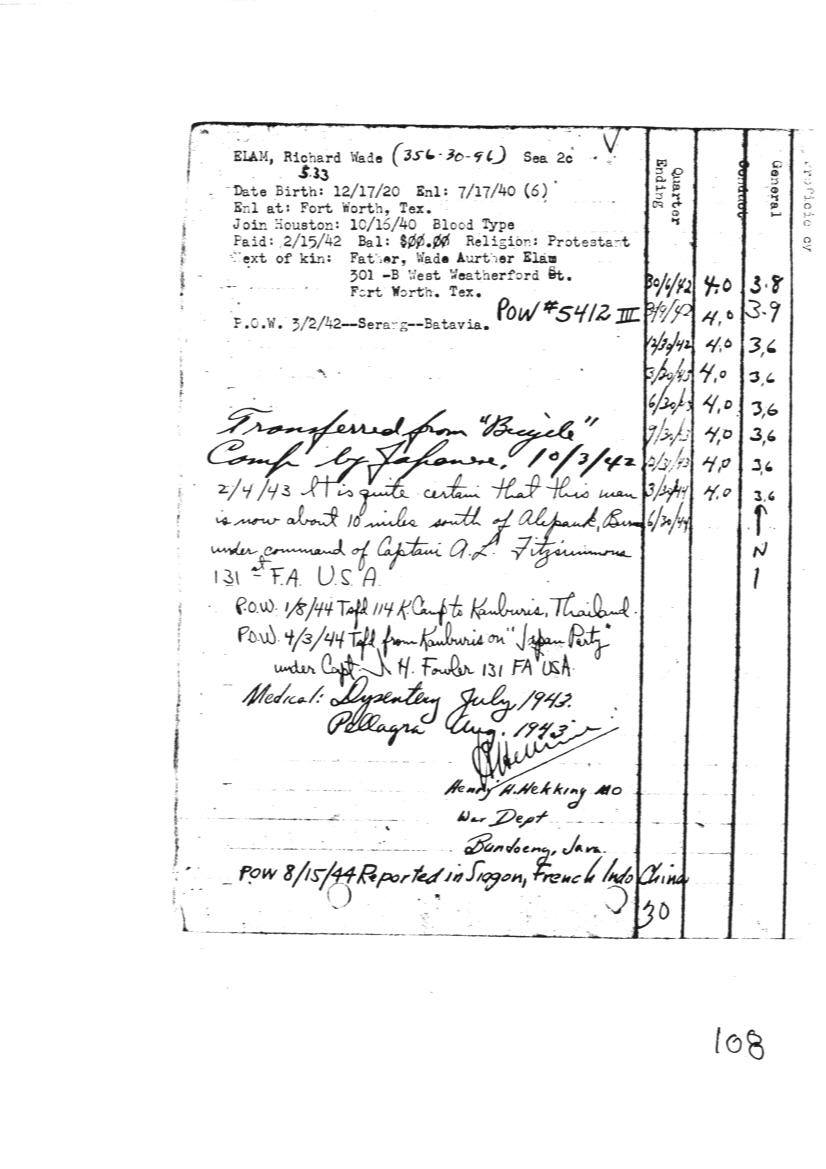 ELAM, Richard Wade (356-30-96) Sea 2c
5.33
Date Birth: 12/17/20 Enl: 7/17/40 (6)
Enl at: Fort Worth, Tex.
Join Houston: 10/16/40 Blood Type
Paid: 2/15/42 Bal: $00.00 Religion: Protestant
Next of kin: Father, Wade Aurther Elam
301 -B West Weatherford St.
Fort Worth. Tex.
POW #5412 III
P.O.W. 3/2/42--Serang--Batavia.
Transferred from "Bicycle"
Camp by Japanese, 10/3/42
2/4/43 It is quite certain that this man
is now about 10 miles south of Alepauk, Burm
under command of Captain A.L. Fitzsimmons
131 st F.A. U.S.A.
P.O.W. 1/8/44 Tsfd 114 K. Camp to Kanburis, Thailand.
P.O.W. 4/3/44 Tsfd from Kanburis on "Japan Party"
under Capt. J. H. Fowler 131 FA USA
Medical: Dysentery July, 1943.
Pellagra Aug. 1943
Henry H. Hekking MO
War Dept
Bandoeng, Java.
POW 8/15/44 Reported in Siagon, French Indo China
Quarter Ending Conduct General Proficiency
30/6/42 4.0 3.8
4.0 3.9
12/30/42 4.0 3.6
4.0 3.6
6/30/43 4.0 3.6
9/30/43 4.0 3.6
12/31/43 4.0 3.6
3/30/44 4.0 3.6
6/30/44
N
1
30
108